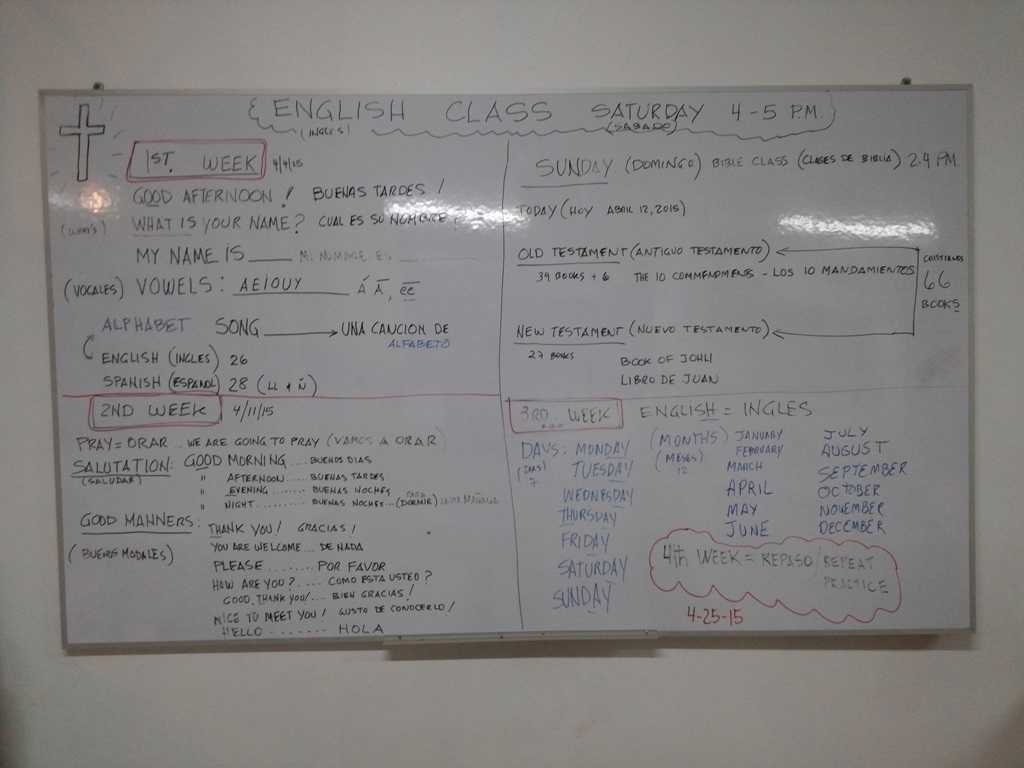 ENGLISH CLASS SATURDAY 4-5 P.M.
(INGLES) (SABADO)
1ST. WEEK 4/4/15
GOOD AFTERNOON! BUENAS TARDES!
(WHAT'S) WHAT IS YOUR NAME? CUAL ES SU NOMBRE?
MY NAME IS ____ MI NOMBRE ES ____
(VOCALES) VOWELS: AEIOUY
ALPHABET SONG → UNA CANCION DE
ALFABETO
ENGLISH (INGLES) 26
SPANISH (ESPANOL) 28 (LL + Ñ)
SUNDAY (DOMINGO) BIBLE CLASS (CLASES DE BIBLIA) 2-4 PM.
TODAY (HOY ABRIL 12, 2015)
OLD TESTAMENT (ANTIGUO TESTAMENTO)
39 BOOKS THE 10 COMMENDMENTS - LOS 10 MANDAMIENTOS
66
BOOKS
NEW TESTAMENT (NUEVO TESTAMENTO)
27 BOOKS
BOOK OF JOHN
LIBRO DE JUAN
2ND WEEK 4/11/15
PRAY = ORAR .. WE ARE GOING TO PRAY (VAMOS A ORAR)
SALUTATION: GOOD MORNING .... BUENOS DIAS
(SALUDAR) " AFTERNOON ..... BUENAS TARDES
" EVENING ........ BUENAS NOCHES
" NIGHT .......... BUENAS NOCHES ... (PARA DORMIR)
GOOD MANNERS: THANK YOU! GRACIAS!
(BUENOS MODALES) YOU ARE WELCOME ... DE NADA
PLEASE ........ POR FAVOR
HOW ARE YOU? .... COMO ESTA USTED?
GOOD, THANK YOU! ... BIEN GRACIAS!
NICE TO MEET YOU! GUSTO DE CONOCERLO!
HELLO ........ HOLA
3RD. WEEK ENGLISH = INGLES
DAYS: MONDAY
(DIAS) TUESDAY
7 WEDNESDAY
THURSDAY
FRIDAY
SATURDAY
SUNDAY
(MONTHS) JANUARY JULY
(MESES) FEBRUARY AUGUST
12 MARCH SEPTEMBER
APRIL OCTOBER
MAY NOVEMBER
JUNE DECEMBER
4th WEEK = REPASO / REPEAT
PRACTICE
4-25-15